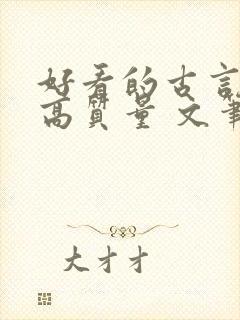 好看的古言
高质量 文笔
大才才